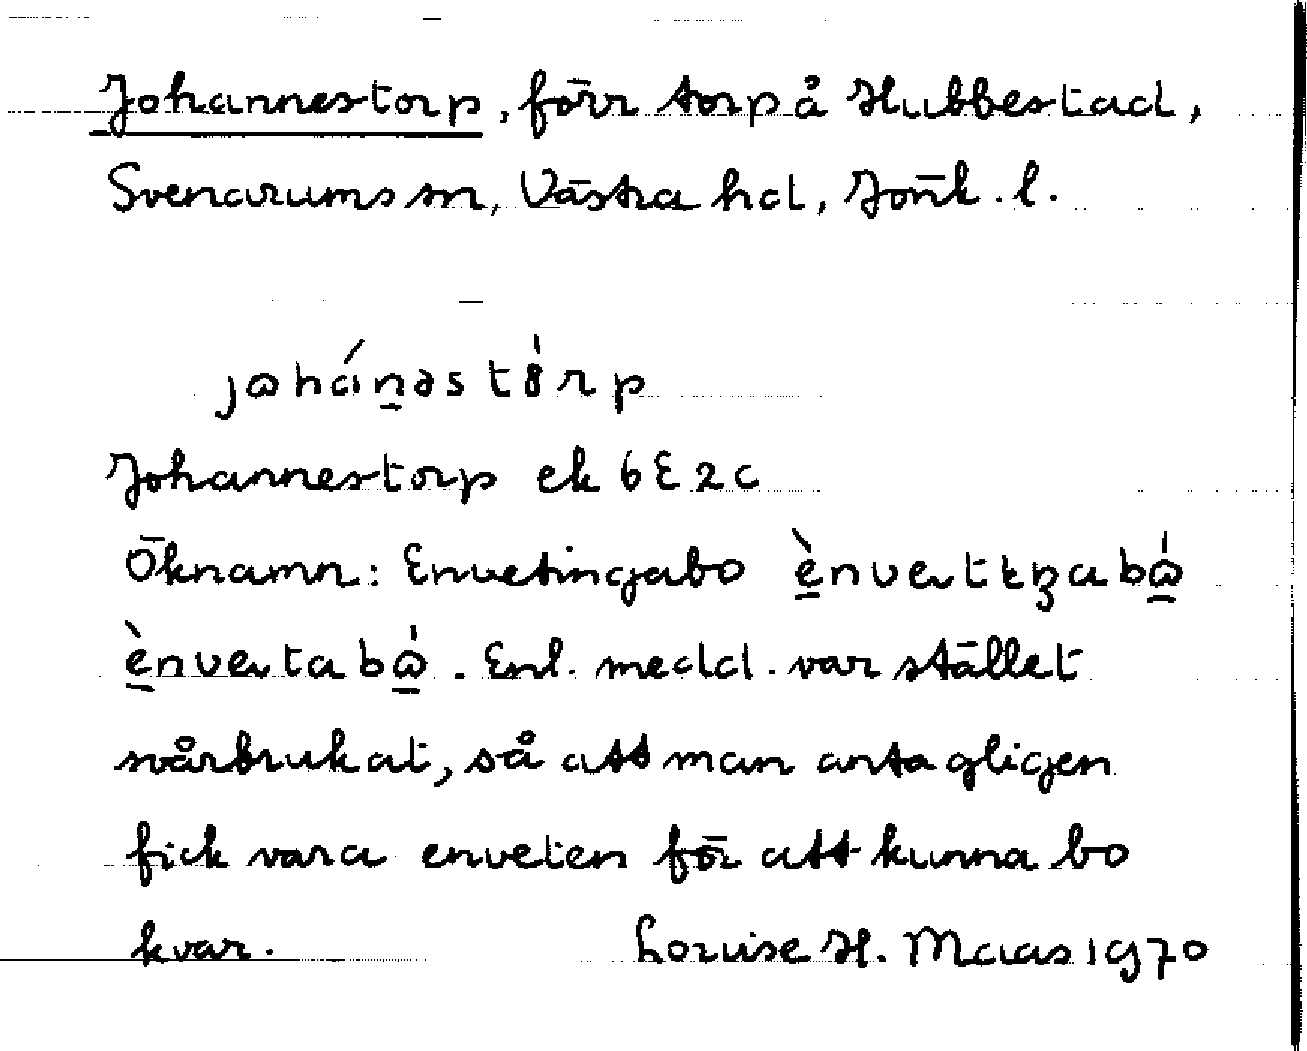 Johannestorp, förr torp å Hubbestad,
Svenarums sn, Västra hd, Jönk. l.
johánəstȯrp
Johannestorp ek 6E2c
Öknamn: Envetingabo
Enl. medd. var stället
svårbrukat, så att man antagligen
fick vara enveten för att kunna bo
kvar. Louise H. Maas 1970